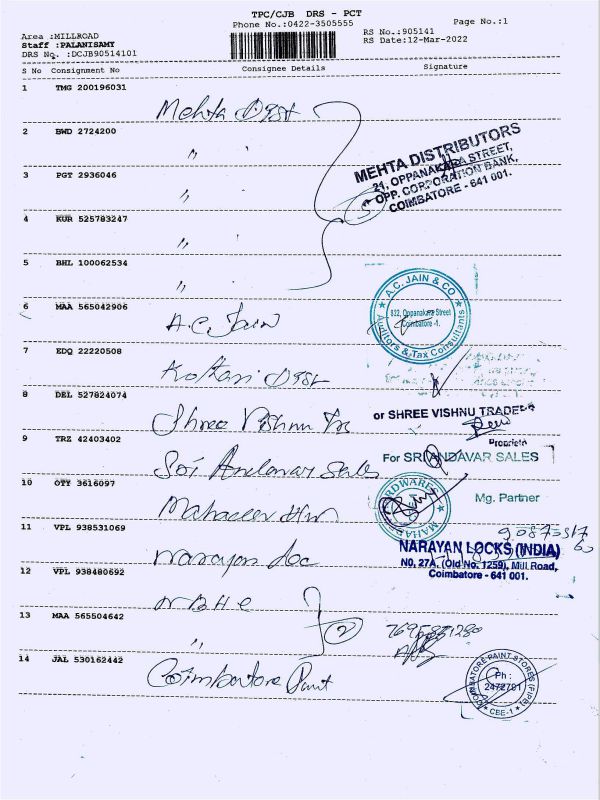 TPC/CJB DRS - PCT
Phone No.:0422-3505555
Page No.:1
Area :MILLROAD
RS No.:905141
Staff :PALANISAMY
RS Date:12-Mar-2022
DRS No. :DCJB90514101
S No Consignment No Consignee Details Signature
1 TMG 200196031
Mehta Dist
2 BWD 2724200
"
MEHTA DISTRIBUTORS
21, OPPANAKARA STREET,
OPP. CORPORATION BANK,
COIMBATORE - 641 001.
3 PGT 2936046
"
4 KUR 525783247
"
5 BHL 100062534
"
A.C. JAIN & CO
832, Oppanakara Street
Coimbatore -1.
Auditors & Tax Consultants
6 MAA 565042906
A.C. Jain
7 EDQ 22220508
Kothari Dist
8 DEL 527824074
Shree Vishnu Trs
or SHREE VISHNU TRADERS
Proprieto
9 TRZ 42403402
Sri Andavar Sales
For SRI ANDAVAR SALES
10 OTT 3616097
Mahaveer
HARDWARE
MAHA
Mg. Partner
11 VPL 938531069
Narayan Loc
NARAYAN LOCKS (INDIA)
NO. 27A, (Old No. 1259), Mill Road,
Coimbatore - 641 001.
12 VPL 938480692
13 MAA 565504642
"
2
14 JAL 530162442
Coimbatore Paint
COIMBATORE PAINT STORES (FIRE)
Ph :
2472701
CBE-1